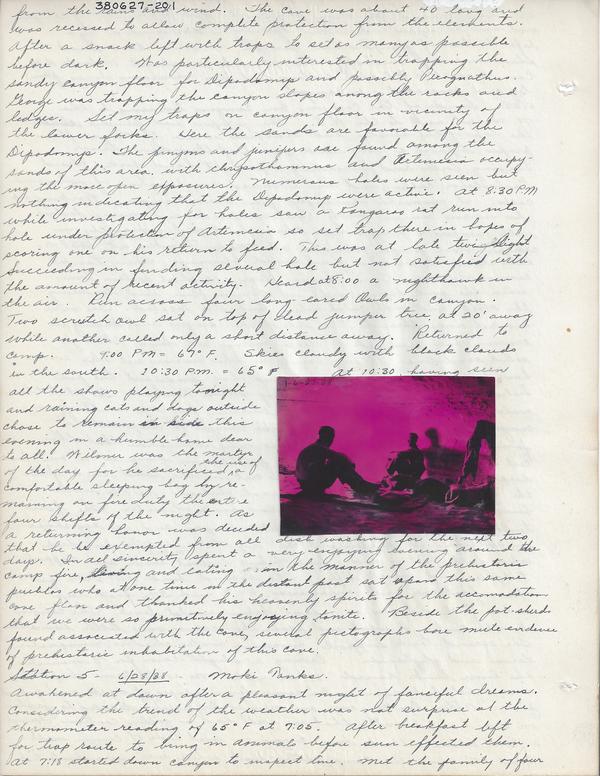 380627-201
from the rains and wind. The cave was about 40' long and
was recessed to allow complete protection from the elements.
After a snack left with traps to set as many as possible
before dark. Was particularly interested in trapping the
sandy canyon floor for Dipodomys and possibly Perognathus.
George was trapping the canyon slopes among the rocks and
ledges. Set my traps on canyon floor in vicinity of
the lower forks. Here the sands are favorable for the
Dipodomys. The pinyons and junipers are found among the
sands of this area, with chrysothamnus and Artemesia occupy-
ing the more open exposures. Numerous holes were seen but
nothing indicating that the Dipodomys were active. At 8:30 PM
while investigating for holes saw a Kangaroo rat run into
hole under protection of Artemesia so set trap there in hopes of
scoring one on his return to feed. This was at late twi-light
Succeeding in finding several hole but not satisfied with
the amount of recent activity. Heard at 8:00 a nighthawk in
the air. Run across four long-eared Owls in canyon.
Two screech owl sat on top of dead juniper tree, at 20' away
while another called only a short distance away. Returned to
camp. 9:00 PM = 67° F. Skies cloudy with black clouds
in the south. 10:30 P.M. = 65° F At 10:30, having seen
all the shows playing tonight
and raining cats and dogs outside
chose to remain in side this
evening in a humble home dear
to all. Wilmer was the martyr
of the day for he sacrificed the use of a
comfortable sleeping bag by re-
maining on fire duty the entire
four shifts of the night. As
a returning honor was decided
that he be exempted from all dish washing for the next two
days. In all sincerity, spent a very enjoyable evening around the
camp fire, and eating in the manner of the prehistoric
pueblos who at one time in the distant past sat upon this same
cave floor and thanked his heavenly spirits for the accomodation
that we were so primitively enjoying tonite. Beside the pot-sherds
found associated with the cave, several pictographs bore mute evidence
of prehistoric inhabitation of this cave.
Station 5- 6/28/38 Moki Tanks.
Awakened at dawn after a pleasant night of fanciful dreams.
Considering the trend of the weather was not surprise at the
thermometer reading of 65° F at 7:05. After breakfast left
for trap route to bring in animals before sun effected them.
At 7:18 started down canyon to inspect line. Met the family of four